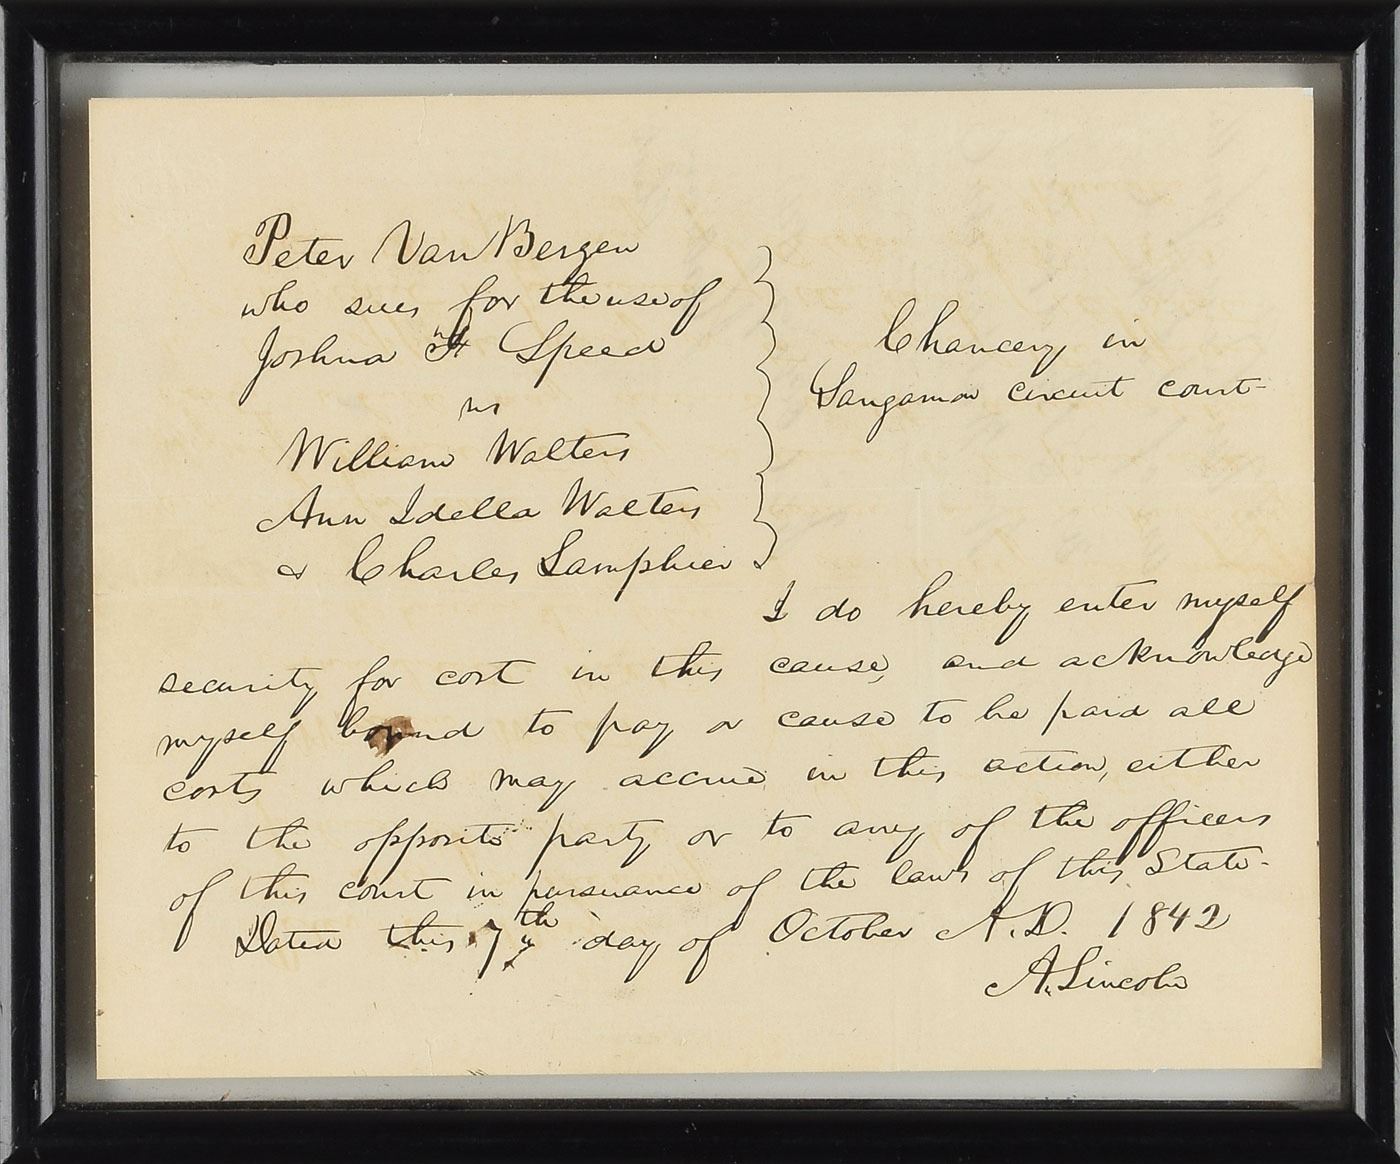 Peter Van Bergen
who sues for the use of
Joshua F Speed
vs
William Walters
Ann Idella Walters
& Charles Lamphier
Chancery in
Sangamon circuit court-
I do hereby enter myself
security for cost in this cause, and acknowledge
myself bound to pay or cause to be paid all
costs which may accrue in this action, either
to the opposite party or to any of the officers
of this court in pursuance of the laws of this State-
Dated this 7th day of October A.D. 1842
A. Lincoln